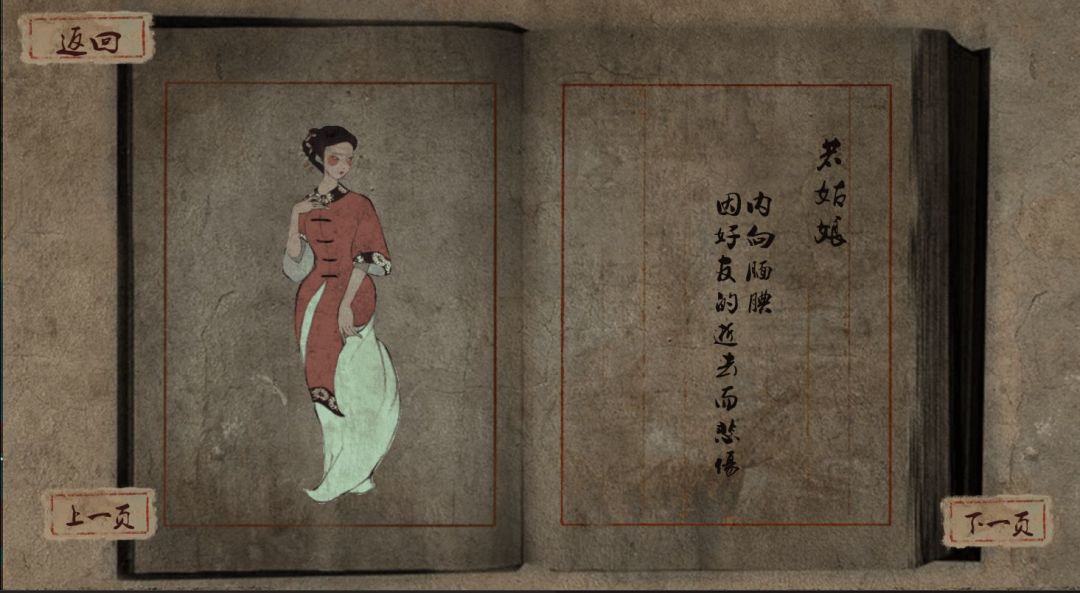 返回
若姑娘
内向腼腆
因好友的逝去而悲伤
上一页
下一页